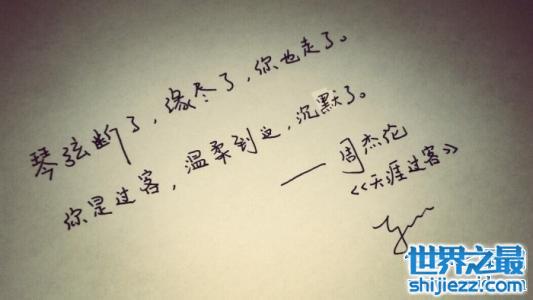 琴弦断了，缘尽了，你也走了。
你是过客，温柔到此，沉默了。
——周杰伦
《天涯过客》
世界之最
shijiezz.com